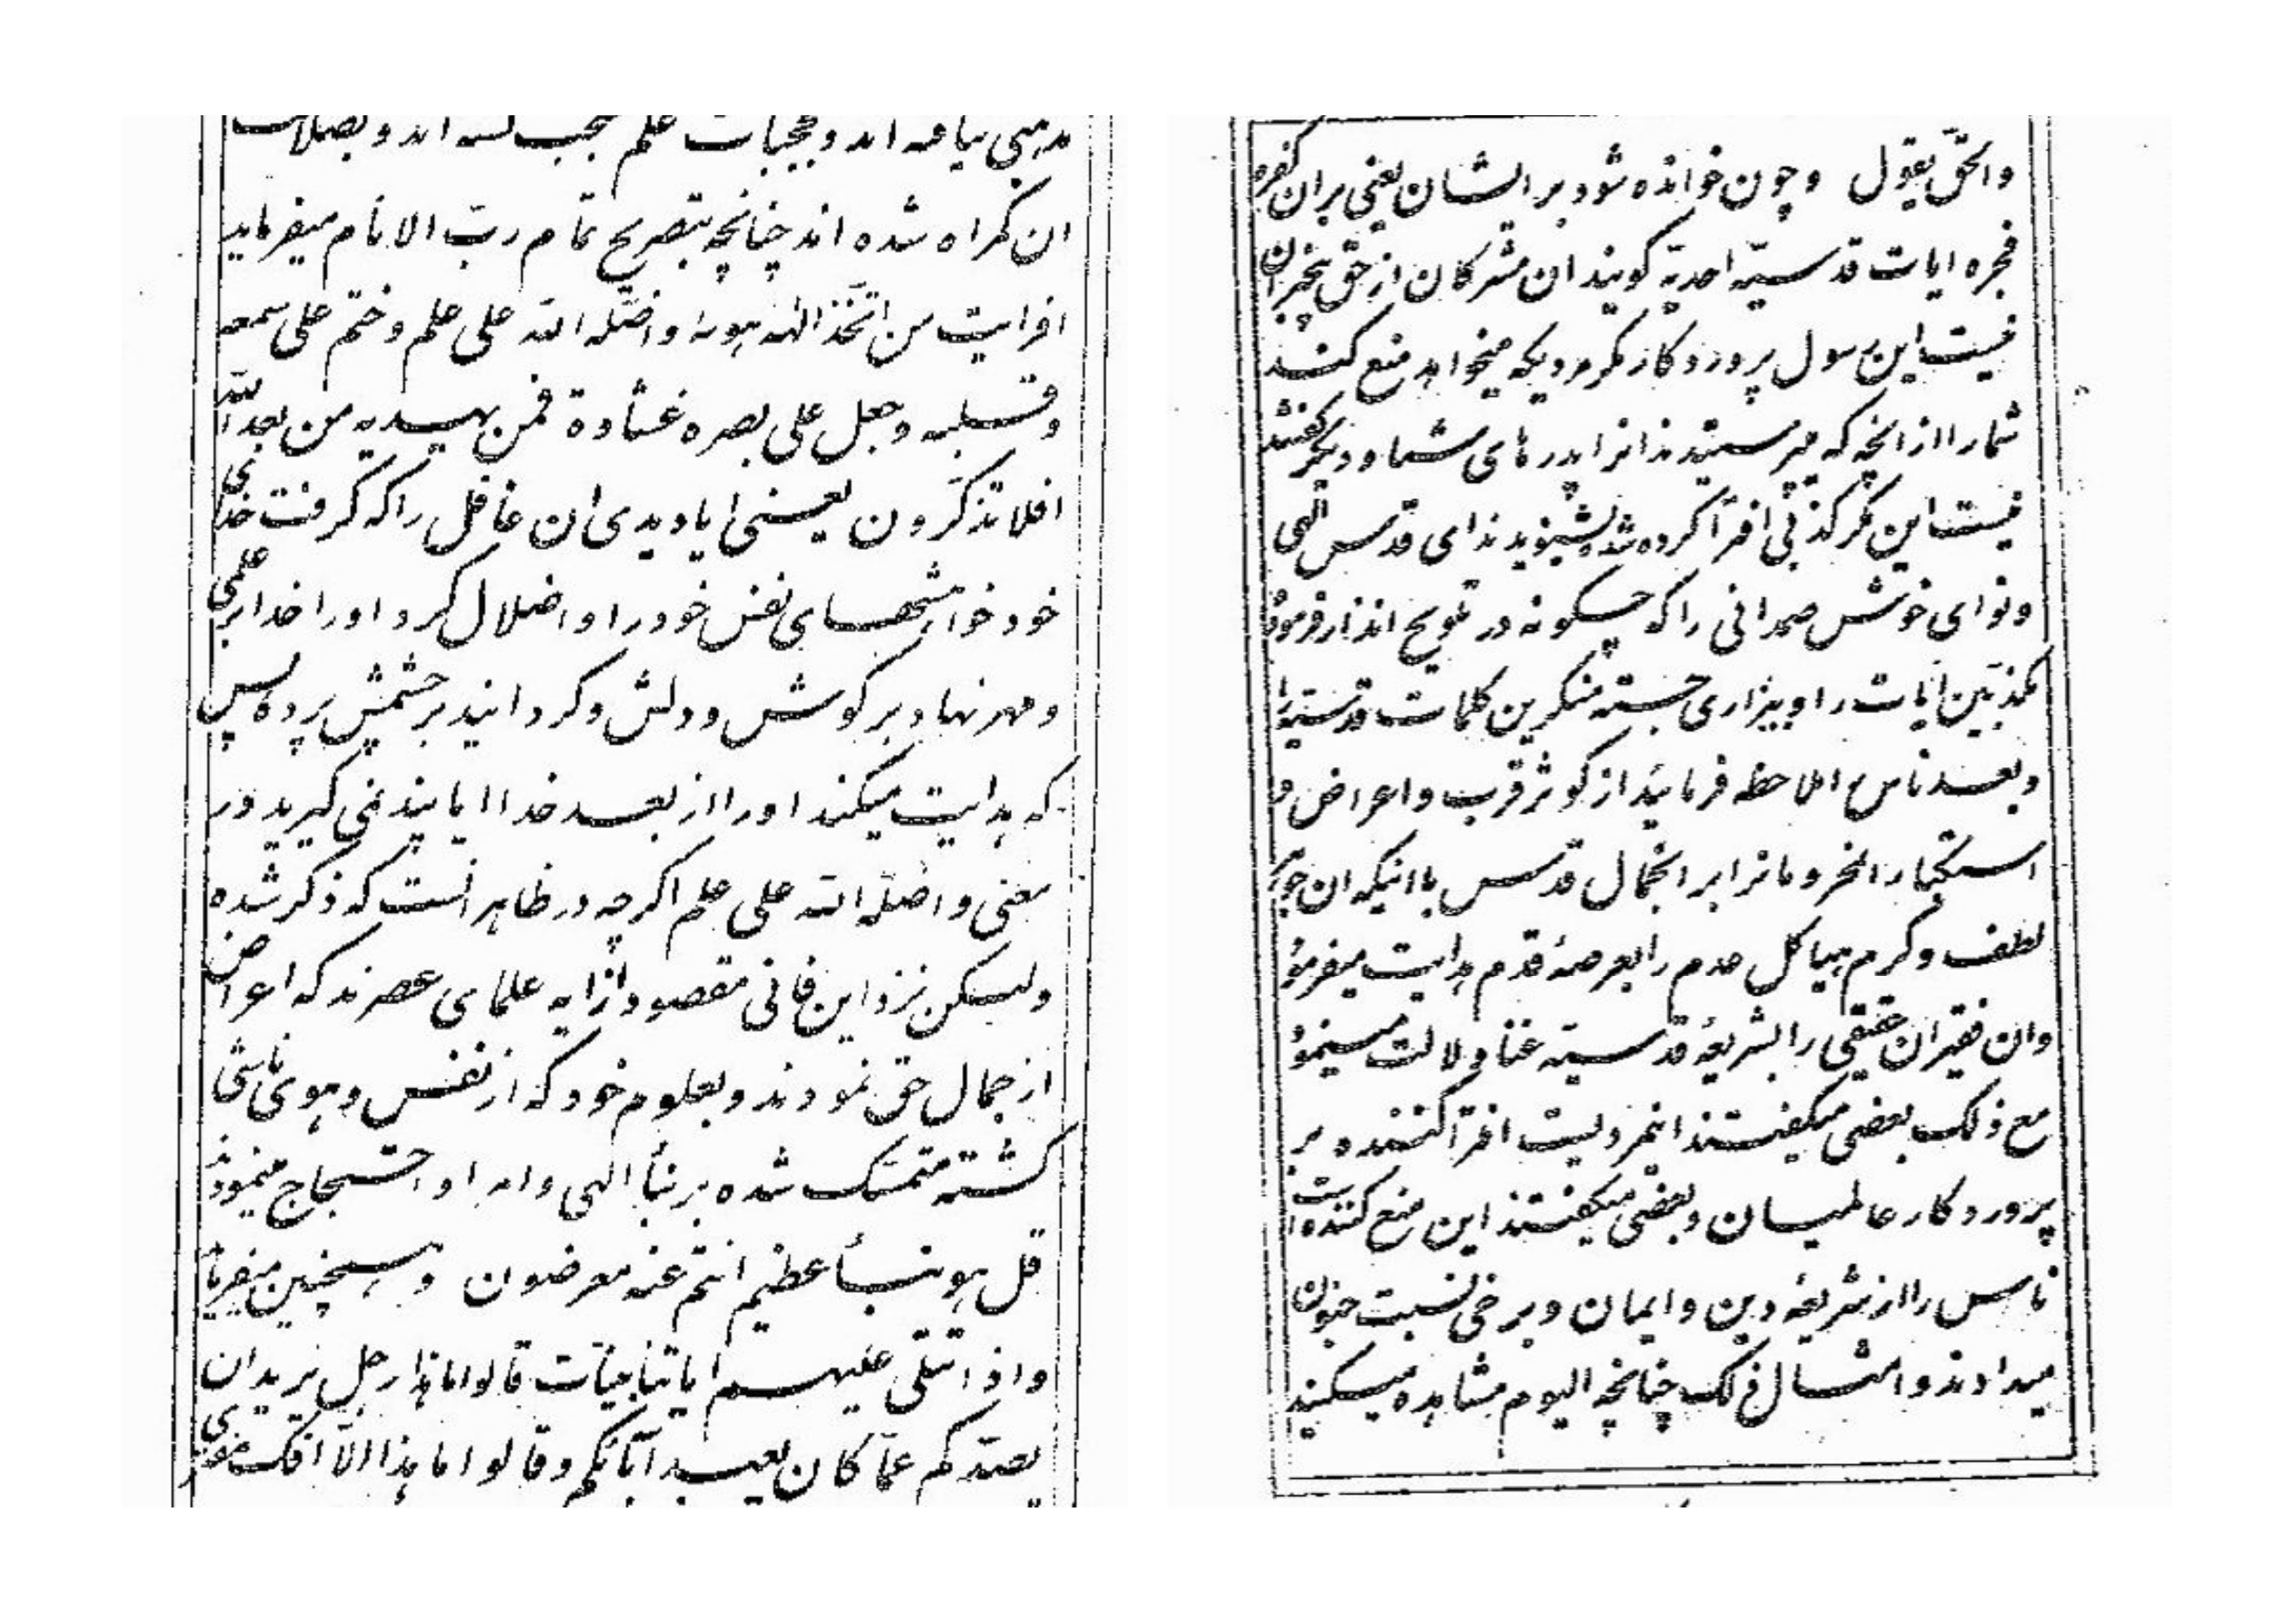 مذهبی نیافته اند و بحجبات علم محتجب گشته اند و بضلالت
ان کمراه شده اند چنانچه بتصریح تمام ربّ الانام میفرماید
افرایت من اتّخذ الهه هویه و اضلّه الله علی علم و ختم علی سمعه
و قلبه و جعل علی بصره غشاوة فمن یهدیه من بعد الله
افلا تذکّرون یعنی ایا دیدی ان غافل را که کرفت خدای
خود خواهشهای نفس خود را و اضلال کرد او را خدا بر علمی
و مهر نهاد بر کوشش و دلش و کردانید بر چشمش پرده پس
که هدایت میکند او را از بعد خدا ایا پند نمی کیرید و در
معنی و اضلّه الله علی علم اکرچه در ظاهر انست که ذکر شده
ولیکن نزد این فانی مقصود از ایه علمای عصرند که اعراض
از جمال حق نمودند و بعلوم خود که از نفس و هوی ناشی
کشته متمسّک شده بر نبأ الهی و امر او احتجاج مینمودند
قل هو نبأ عظیم انتم عنه معرضون و همچنین میفرماید
و اذا تتلی علیهم ایاتنا بیّنات قالوا ما هذا رجل یرید ان
یصدّکم عمّا کان یعبد آبائکم و قالوا ما هذا الّا افک مفتری
و الحقّ یقول و چون خوانده شود بر ایشان یعنی بر ان کفره
فجره ایات قدسیّه احدیّه کویند ان مشرکان از حق بیخبران
نیست این رسول پروردکار مکر مردیکه میخواهد منع کند
شما را از انچه که میپرستیدند انرا پدرهای شما و دیکر کفتند
نیست این مکر کذبی افترآ کرده شده بشنوید ندای قدس الهی
و نوای خوش صمدانی را که چکونه در تلویح انذار فرموده
مکذّبین ایات را و بیزاری جسته منکرین کلمات قدسیّه را
و بعد ناس را ملاحظه فرمائید از کوثر قرب و اعراض و
استکبار ان محرومانرا بر انجمال قدس با اینکه ان جوهر
لطف و کرم هیاکل عدم را بعرصهٔ قدم هدایت میفرمود
و ان فقیران حقیقی را بشریعهٔ قدسیّه غنا دلالت مینمود
مع ذلک بعضی میکفتند انمردیست افترآ کننده بر
پروردکار عالمیان و بعضی میکفتند این منع کننده است
ناس را از شریعهٔ دین و ایمان و برخی نسبت جنون
میدادند و امثال ذلک چنانچه الیوم مشاهده میکنید